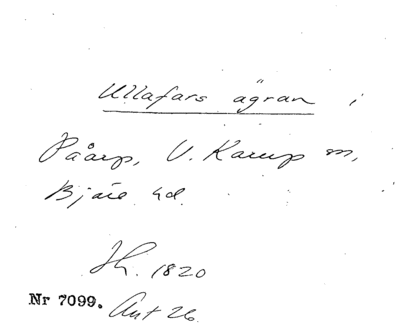 Ullafars ägran i
Påarp, V. Karup sn,
Bjäre hd.
Th. 1820
Nr 7099. Ant 26